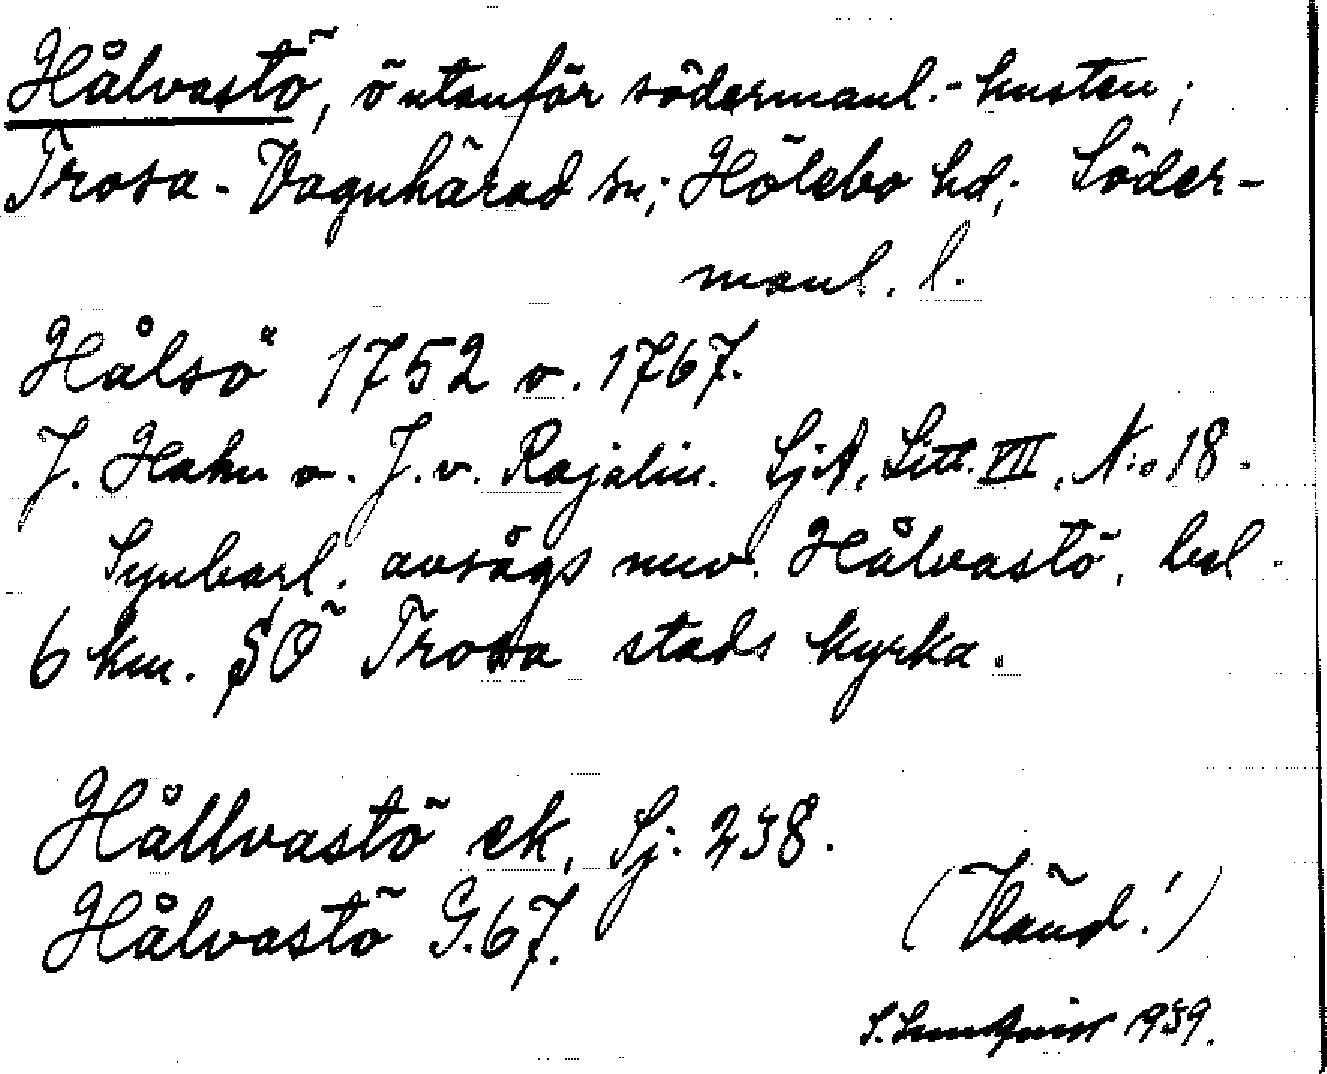 Hålvastö, ö utanför södermanl.-kusten;
Trosa-Vagnhärad sn; Hölebo hd; Söder-
manl. l.
Hålsö 1752 o. 1767.
J. Hahn o. J. v. Rajalin. SjA, Litt. VII, N:o 18.
Synbarl. avsågs nuv. Hålvastö, bel.
6 km. SÖ Trosa stads kyrka.
Hållvastö ek, Sj. 238.
Hålvastö G.67.
(Vänd!)
S. 1939.